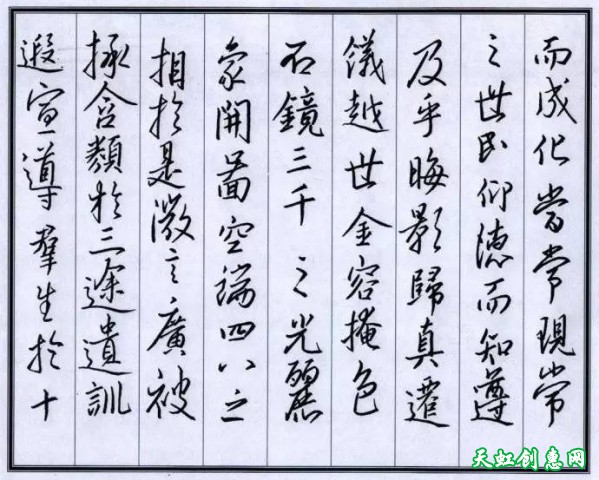 而成化當常現常
之世民仰德而知遵
及乎晦影歸真遷
儀越世金容掩色
不鏡三千之光麗
象開圖空端四八之
相於是微言廣被
拯含類於三途遺訓
遐宣導羣生於十
天虹创惠网